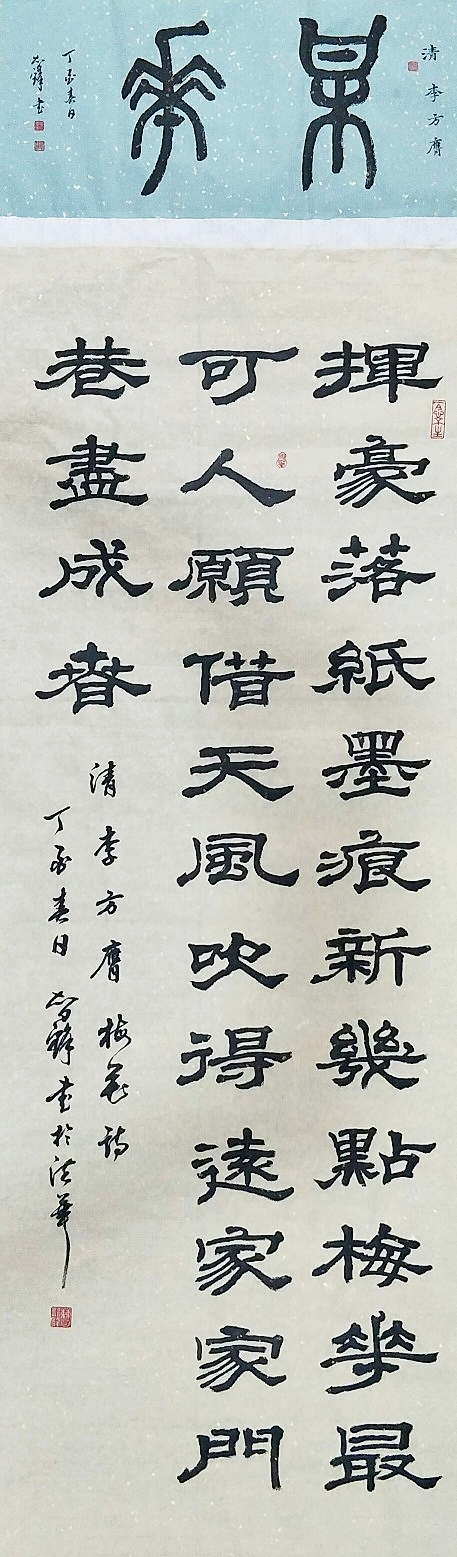 清 李方膺
某華
丁酉春日
鋒书
揮豪落紙墨痕新幾點梅華最
可人願借天風吹得遠家家門
巷盡成春
清李方膺梅花詩
丁酉春日鋒书於華